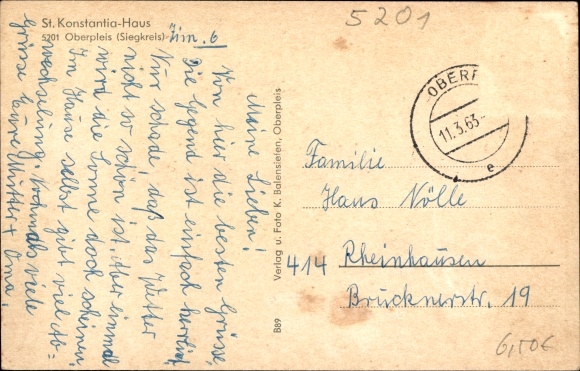 5201
St. Konstantia-Haus
5201 Oberpleis (Siegkreis)
Zim. 6
Meine Lieben!
Von hier die besten Grüsse,
die Gegend ist einfach herrlich
Nur schade, daß das Wetter
nicht so schön ist. Aber einmal
wird die Sonne doch scheinen.
Im Hause selbst gibt viel Ab=
wechselung. Nochmals viele
Grüsse Eure Mutter + Oma.
Verlag u. Foto K. Balensiefen, Oberpleis
B89
11.3.63
e
Familie
Hans Nölle
414 Rheinhausen
Brucknerstr. 19
6,50€